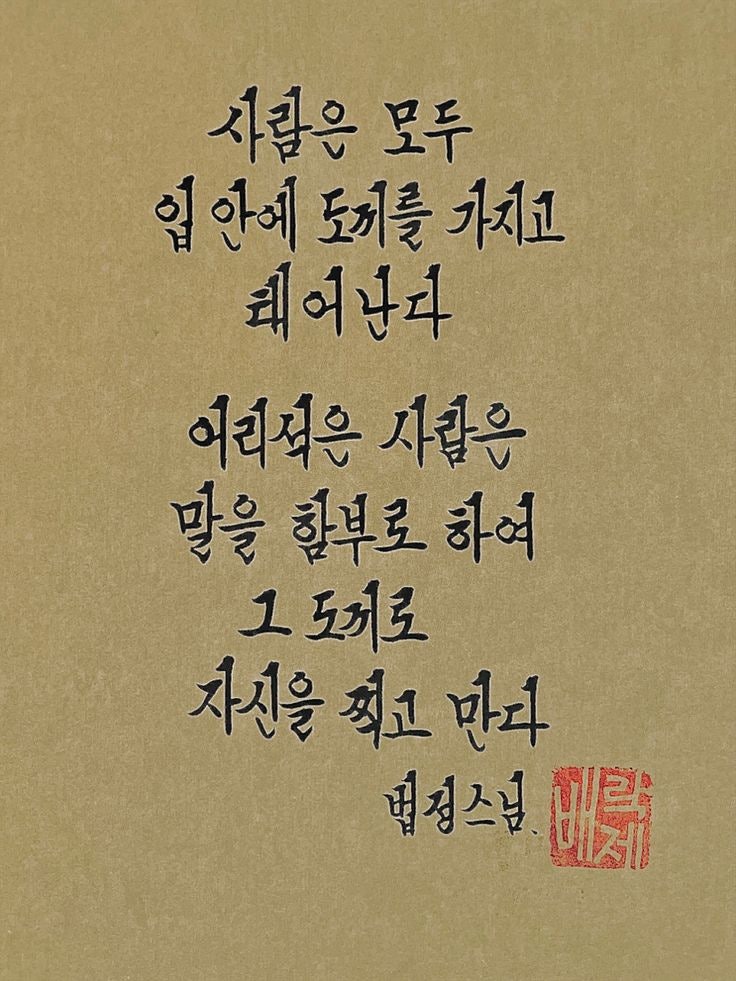 사람은 모두
입 안에 도끼를 가지고
태어난다
어리석은 사람은
말을 함부로 하여
그 도끼로
자신을 찍고 만다
법정스님.
배락제